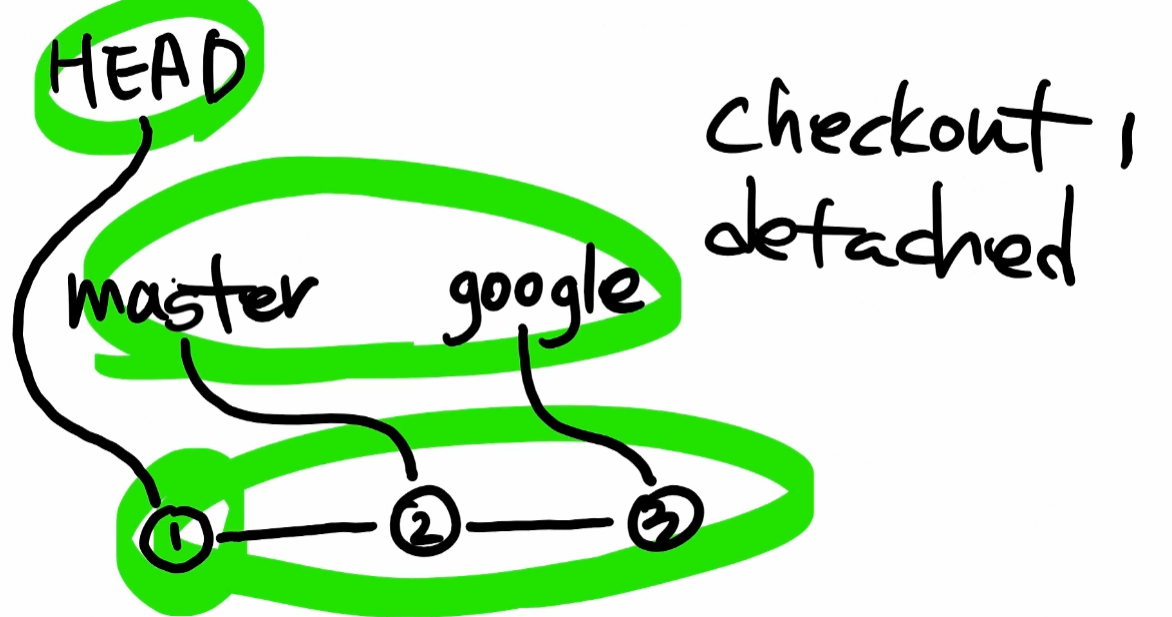 HEAD
checkout 1
detached
master google
1 2 3